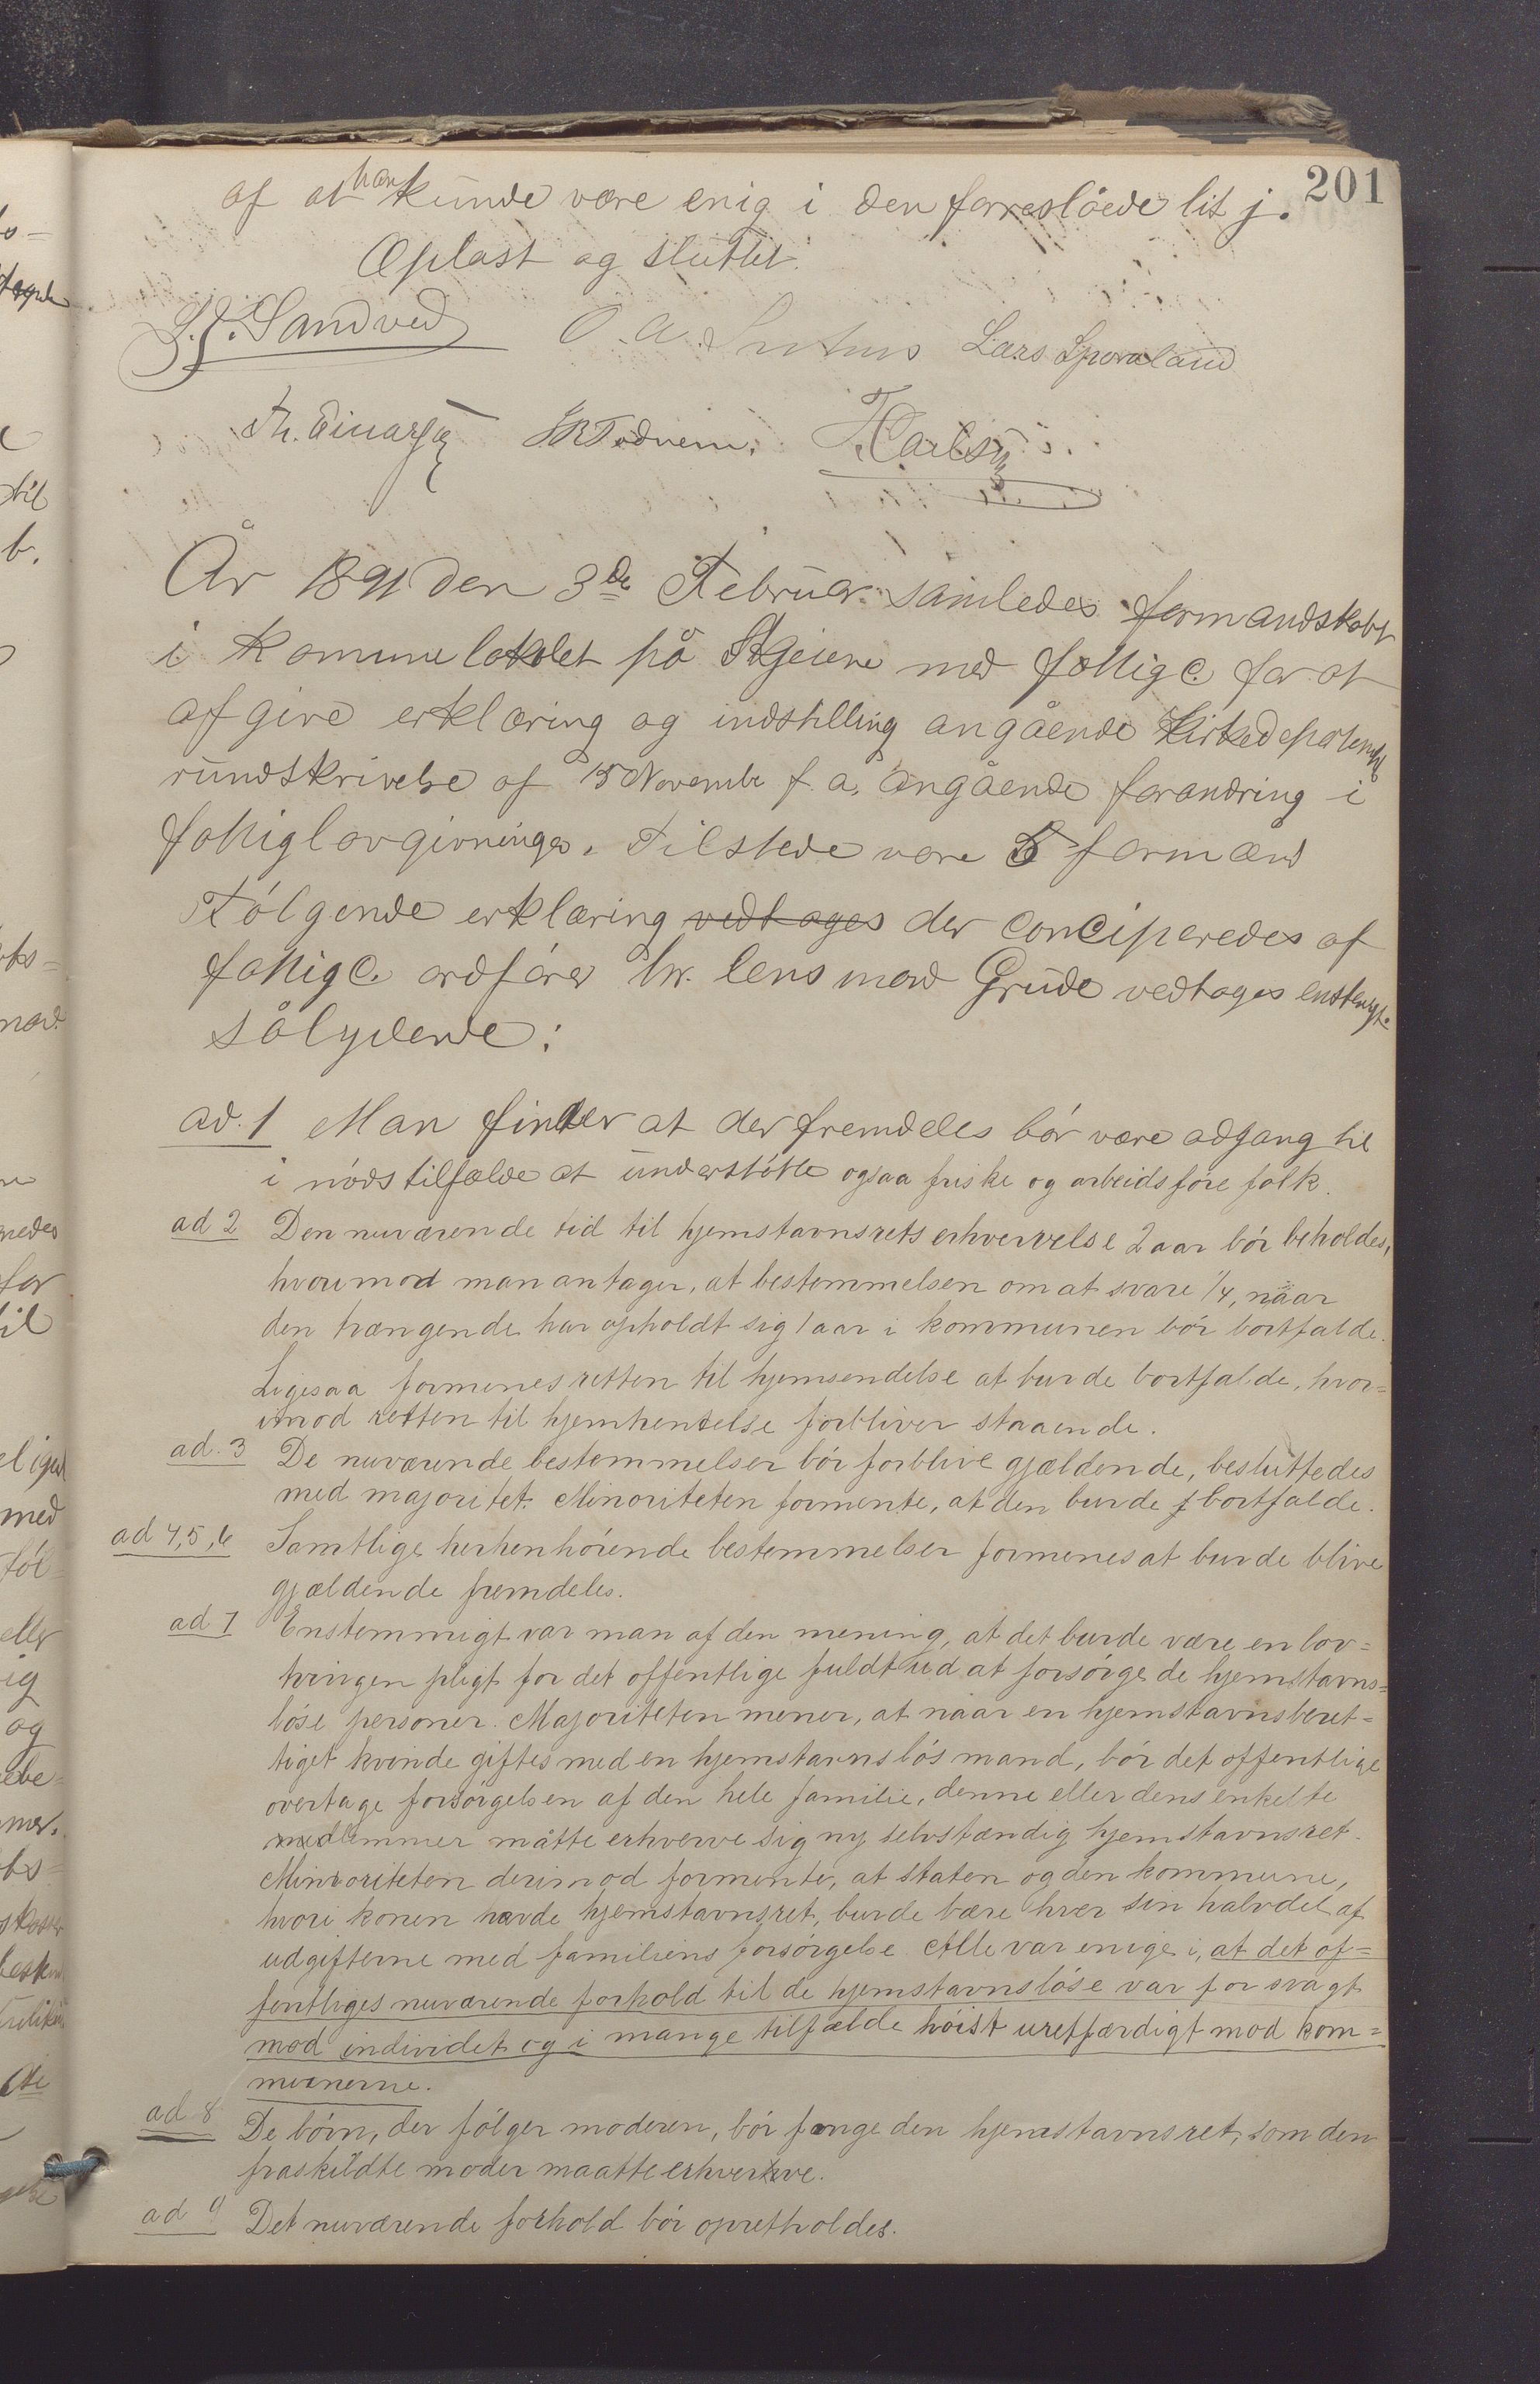 201
af at han kunde være enig i den foreslåede lit j.
Oplæst og sluttet.
S. J. Sandved O. A. Lars Sporaland
Th. Einarsen Todnem. Carlsen
År 1891 den 3de Februar samledes formandskabet
i kommunelokalet på Skjeiene med fattigc. for at
afgive erklæring og indstilling angående kirkedepartem.
rundskrivelse af 15 Novembr f. a. angående forandring i
fattiglovgivningen. Tilstede vare 5 formænd
Følgende erklæring vedtages der conciperedes af
fattigc. ordfører hr. lensmand Grude vedtages enstemgt.
sålydende:
ad. 1 Man finder at der fremdeles bör være adgang til
i nödstilfælde at understötte ogsaa friske og arbeidsföre folk.
ad 2 Den nuværende tid til hjemstavnsrets erhvervelse 2 aar bör beholdes,
hvorimod man antager, at bestemmelsen om at svare 1/4, naar
den trængende har opholdt sig 1 aar i kommunen bör bortfalde.
Ligesaa formenes retten til hjemsendelse at burde bortfalde, hvor=
imod retten til hjemhentelse forbliver staaende.
ad. 3 De nuværende bestemmelser bör forblive gjældende, besluttedes
med majoritet. Minoriteten formente, at den burde bortfalde.
ad 4,5,6 Samtlige herhenhörende bestemmelser formenes at burde blive
gjældende fremdeles.
ad 7 Enstemmigt var man af den mening, at det burde være en lov=
tvingen pligt for det offentlige fuldt ud at forsörge de hjemstavns=
löse personer. Majoriteten mener, at naar en hjemstavnsberet=
tiget kvinde giftes med en hjemstavnslös mand, bör det offentlige
overtage forsörgelsen af den hele familie, denne eller dens enkelte
medlemmer måtte erhverve sig ny selvstændig hjemstavnsret.
Minoriteten derimod formente, at staten og den kommune,
hvori konen havde hjemstavnsret, burde bære hver sin halvdel af
udgifterne med familiens forsörgelse. Alle var enige i, at det of=
fentliges nuværende forhold til de hjemstavnslöse var for svagt
mod individet og i mange tilfælde höist uretfærdigt mod kom=
munerne.
ad 8 De börn, der fölger moderen, bör fange den hjemstavnsret, som den
fraskildte moder maatte erhverve.
ad 9 Det nuværende forhold bör opretholdes.